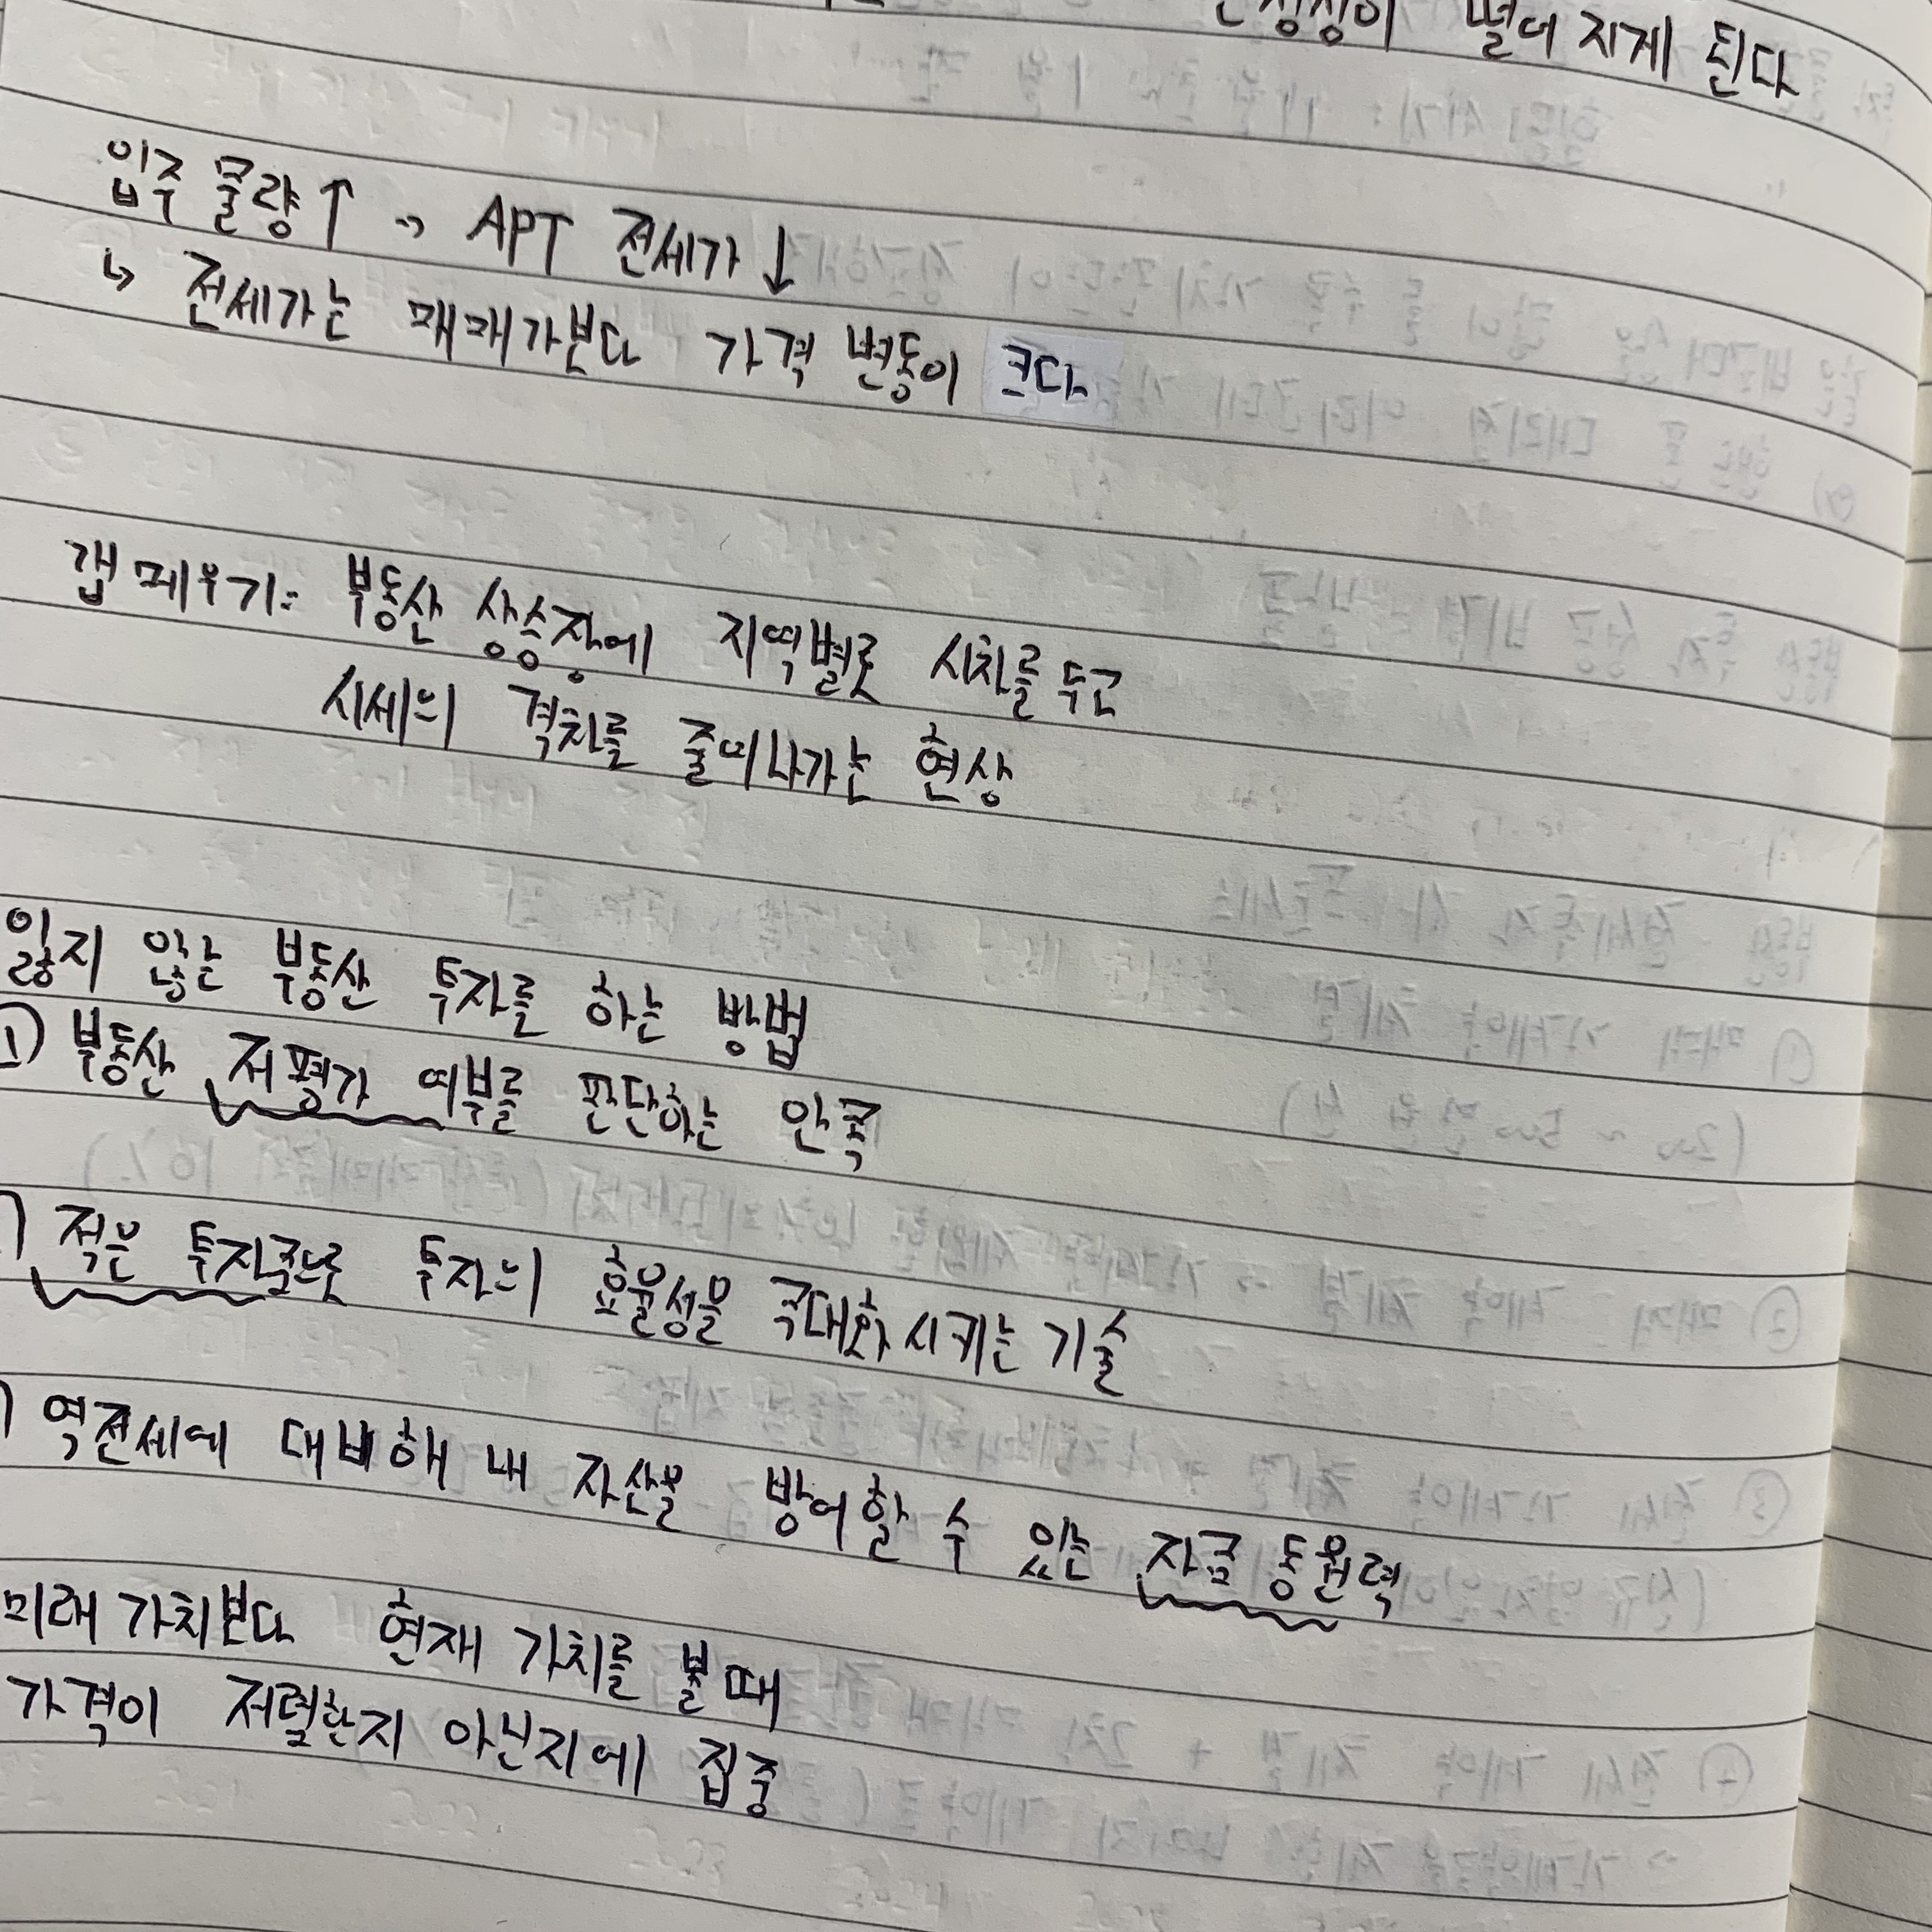 떨어 지게 된다
입주 물량↑ → APT 전세가↓
↳ 전세가는 매매가보다 가격 변동이 크다
갭 메우기: 부동산 상승장에 지역별로 시차를 두고
시세의 격차를 줄여나가는 현상
잃지 않는 부동산 투자를 하는 방법
1) 부동산 저평가 여부를 판단하는 안목
) 적은 투자금으로 투자의 효율성을 극대화시키는 기술
) 역전세에 대비해 내 자산을 방어할 수 있는 자금 동원력
미래 가치보다 현재 가치를 볼 때
가격이 저렴한지 아닌지에 집중